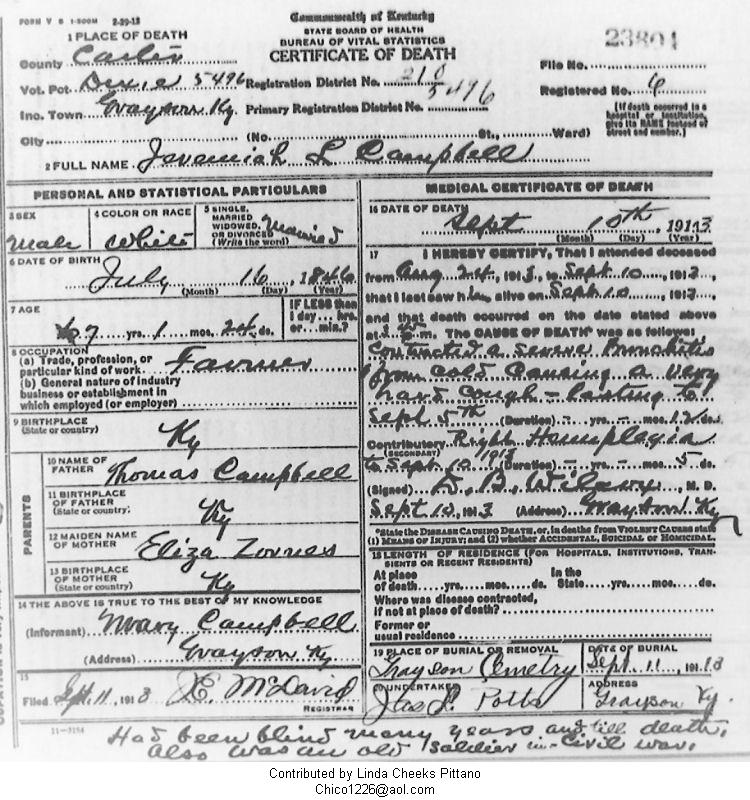 FORM V S 1-500M 2-29-12
Commonwealth of Kentucky
STATE BOARD OF HEALTH
BUREAU OF VITAL STATISTICS
CERTIFICATE OF DEATH
23804
1 PLACE OF DEATH
County Carter
Vot. Pct Dixie 5496 Registration District No. 210
File No.
Ino. Town Grayson Ky. Primary Registration District No. 5496
Registered No. 6
City (No. St., Ward)
[If death occurred in a hospital or institution, give its NAME instead of street and number.]
2 FULL NAME Jeremiah L Campbell
PERSONAL AND STATISTICAL PARTICULARS
3 SEX Male
4 COLOR OR RACE White
5 SINGLE, MARRIED WIDOWED, OR DIVORCED (Write the word) Married
6 DATE OF BIRTH
July 16, 1846
(Month) (Day) (Year)
7 AGE
67 yrs. 1 mos. 24 ds.
IF LESS than 1 day... hrs. or... min.?
8 OCCUPATION
(a) Trade, profession, or particular kind of work Farmer
(b) General nature of industry business or establishment in which employed (or employer)
9 BIRTHPLACE
(State or country) Ky
PARENTS
10 NAME OF FATHER Thomas Campbell
11 BIRTHPLACE OF FATHER
(State or country) Ky
12 MAIDEN NAME OF MOTHER Eliza Zornes
13 BIRTHPLACE OF MOTHER
(State or country) Ky
14 THE ABOVE IS TRUE TO THE BEST OF MY KNOWLEDGE
(Informant) Mary Campbell
(Address) Grayson Ky
15
Filed Spt. 11, 1913 McDavid
REGISTRAR
11-3184
MEDICAL CERTIFICATE OF DEATH
16 DATE OF DEATH
Sept 10th, 1913
(Month) (Day) (Year)
17 I HEREBY CERTIFY, That I attended deceased
from Aug 24, 1913, to Sept 10, 1913,
that I last saw him alive on Sept 10, 1913,
and that death occurred on the date stated above
at m. The CAUSE OF DEATH* was as follows:
Contracted a severe Bronchitis
from cold Causing a very
hard cough - lasting to
Sept 5th (Duration) - yrs. - mos. 12 ds.
Contributory Right Hemiplegia
(SECONDARY)
to Sept. 10 1913 (Duration) - yrs. - mos. 5 ds.
(Signed) B, M. D.
Sept 10, 1913 (Address) Grayson Ky
*State the DISEASE CAUSING DEATH, or, in deaths from VIOLENT CAUSES state
(1) MEANS OF INJURY; and (2) whether ACCIDENTAL, SUICIDAL OR HOMICIDAL.
18 LENGTH OF RESIDENCE (FOR HOSPITALS, INSTITUTIONS, TRANSIENTS OR RECENT RESIDENTS)
At place In the
of death yrs. mos. ds. State yrs. mos. ds.
Where was disease contracted,
if not at place of death?
Former or
usual residence
19 PLACE OF BURIAL OR REMOVAL
Grayson Cemetry
DATE OF BURIAL
Sept. 11, 1913
20 UNDERTAKER
Jas. Potts
ADDRESS
Grayson Ky.
Had been blind many years and till death,
Also was an old soldier in Civil war.
Contributed by Linda Cheeks Pittano
Chico1226@aol.com